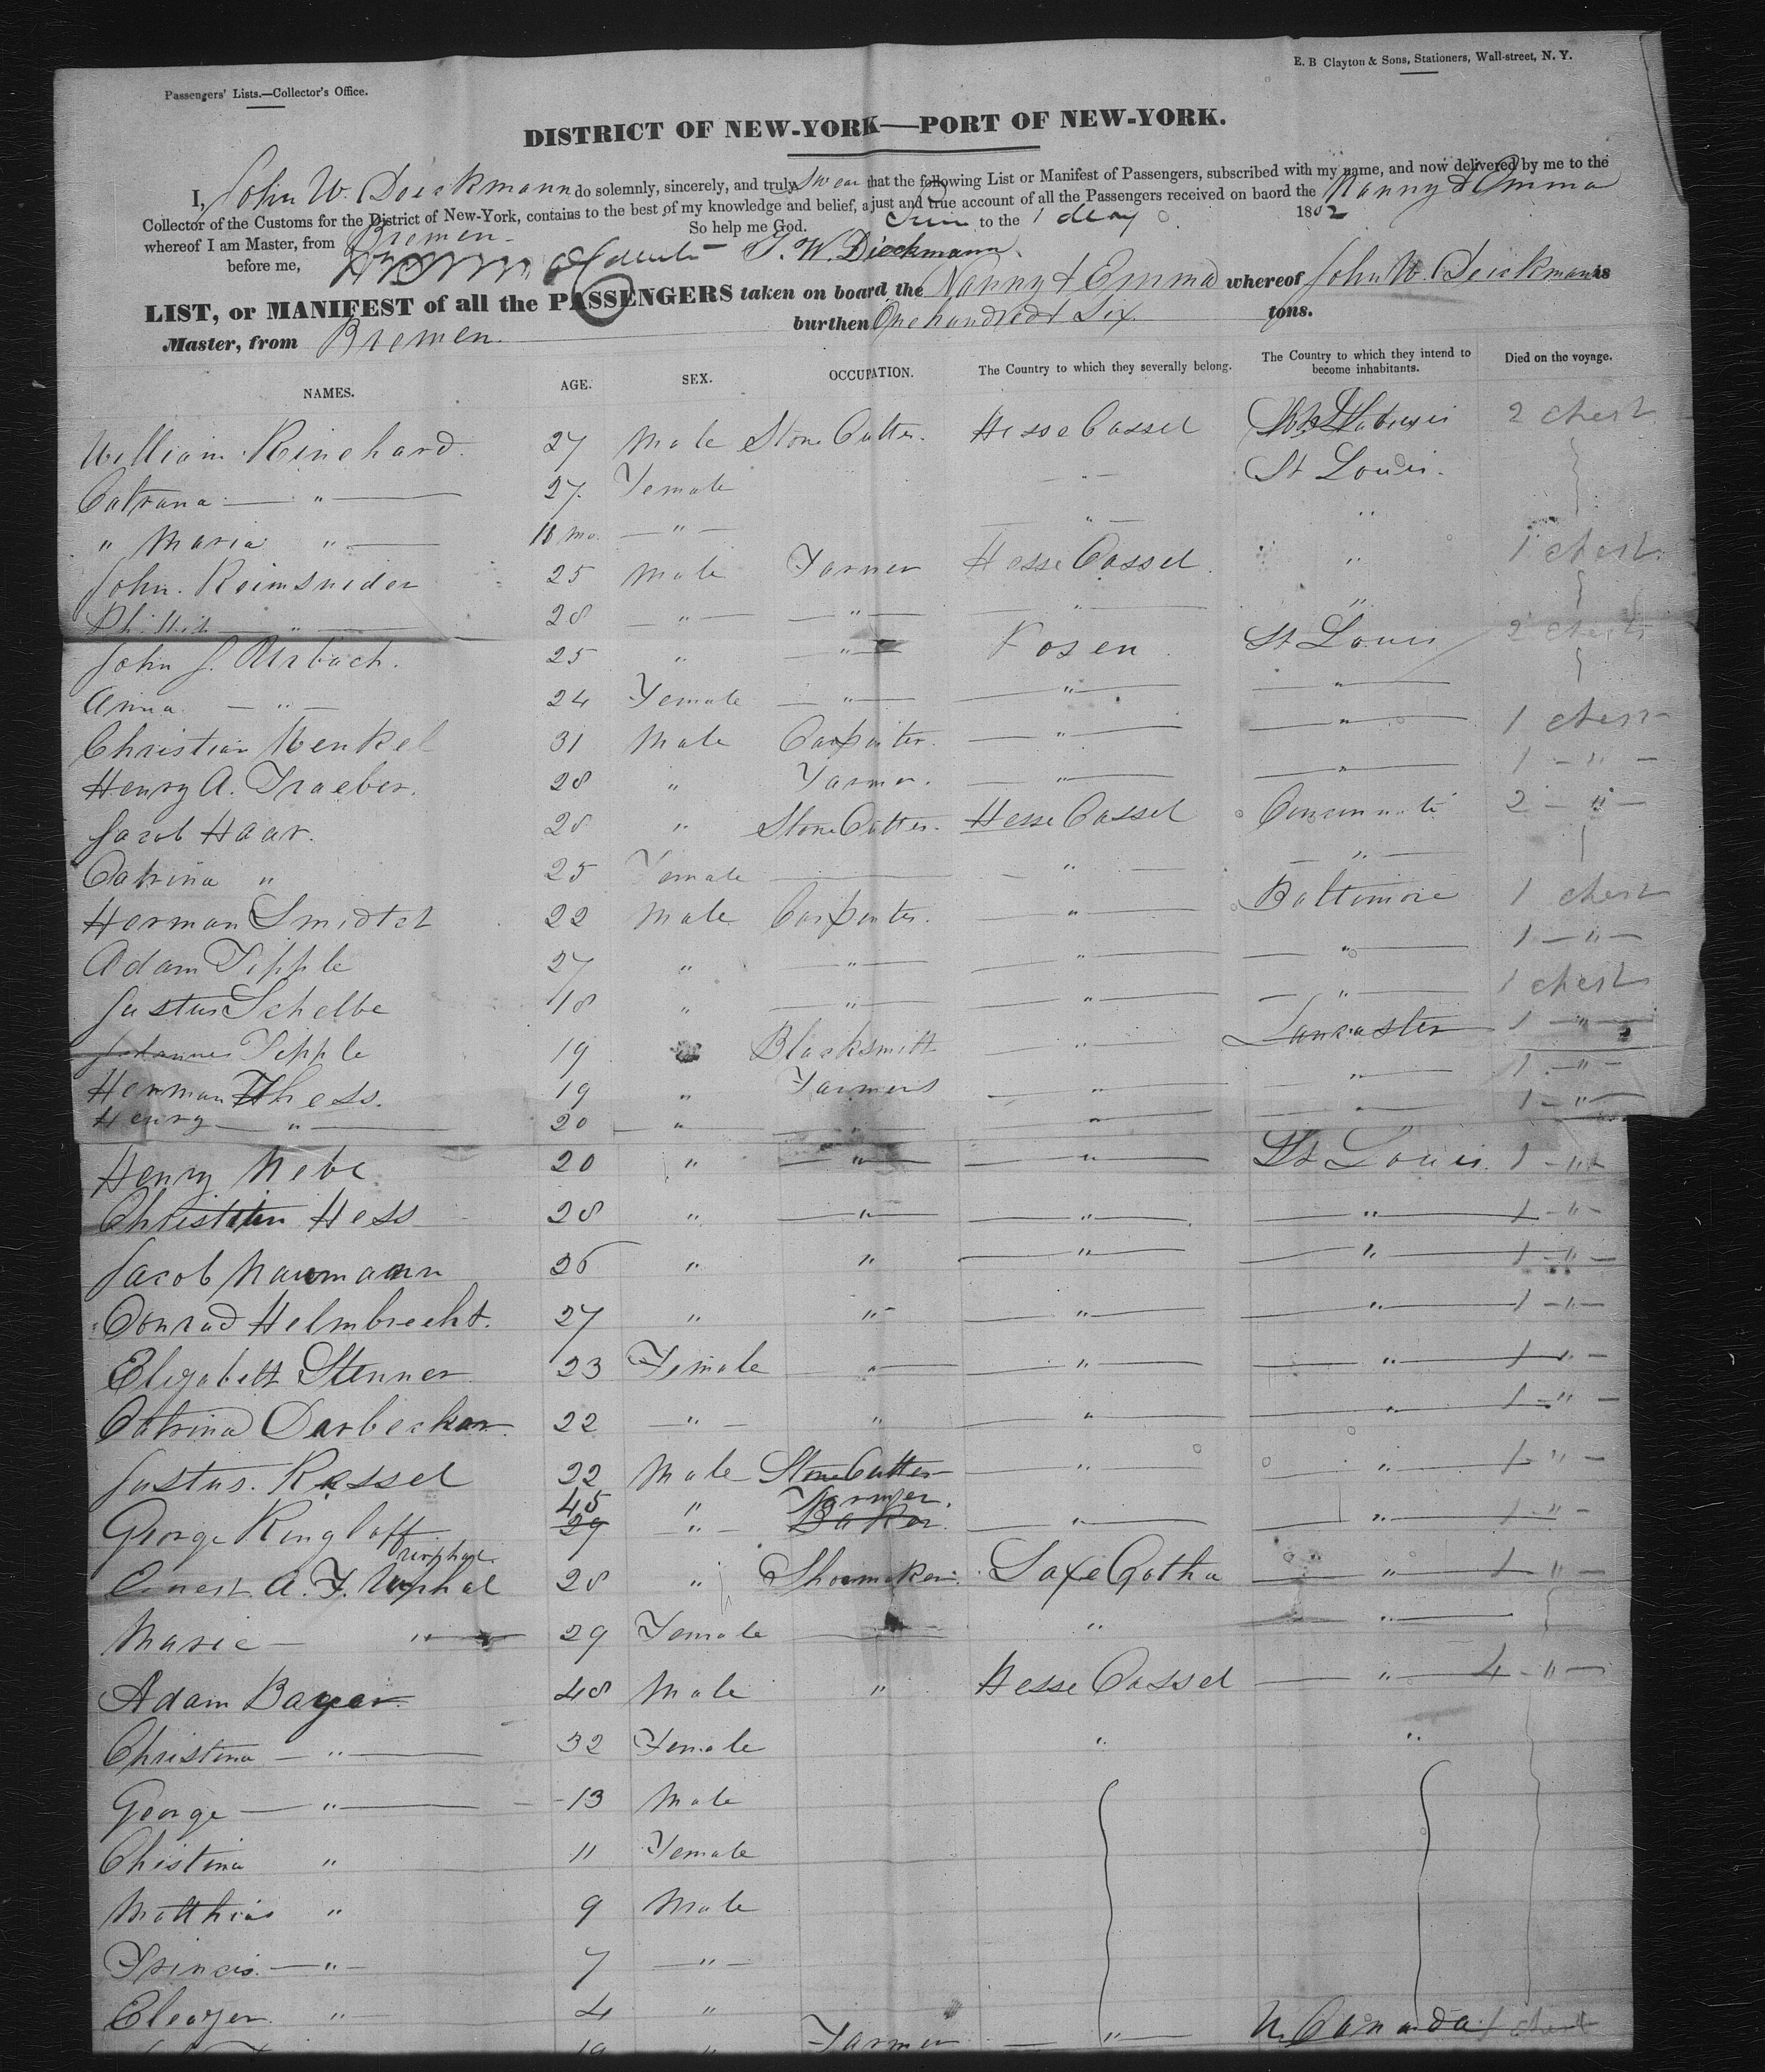 Passengers' Lists.—Collector's Office.
E. B Clayton & Sons, Stationers, Wall-street, N. Y.
DISTRICT OF NEW-YORK—PORT OF NEW-YORK.
I, John W. Deickmann do solemnly, sincerely, and truly Swear that the following List or Manifest of Passengers, subscribed with my name, and now delivered by me to the
Collector of the Customs for the District of New-York, contains to the best of my knowledge and belief, a just and true account of all the Passengers received on baord the Nanny & Emma
whereof I am Master, from Bremen. So help me God. to the 1 day 18
before me, J. W. Dieckmann.
LIST, or MANIFEST of all the PASSENGERS taken on board the Nanny & Emma whereof John W. Deickmann is
Master, from Bremen. burthen One hundred & Six tons.
NAMES. AGE. SEX. OCCUPATION. The Country to which they severally belong. The Country to which they intend to become inhabitants. Died on the voyage.
William Rinehard. 27 Male Stone Cutter. Hesse Cassel 2 chest
Catrana — " — 27. Female — " — St Louis.
" Maria " — 18 mo. — " — — " — "
John. Reimsnider 25 Male Farmer Hesse Cassel. " 1 chest.
— " — 28 — " — — " — " — "
John J. 25 " — " — Posen St Louis 2 chests
Anna. — " — 24 Female — " — — " — — " —
Christian Henkel 31 Male Carpenter. — " — — " — 1 chest
Henry A. Traeber. 28 " Farmer. — " — — " — 1 — " —
Jacob Haar. 28 " Stone Cutter. Hesse Cassel 2 — " —
Catrina " 25 Female — — " — — " —
Herman Smidtet 22 Male Carpenter. — " — Baltimore 1 chest
Adam Tipple 27 " — " — — " — — " — 1 — " —
Justus Schelbe 18 " — " — — " — — " — 1 chest
Johannes Tipple 19 Blacksmith — " — Lancaster 1 — " —
Herman Hess. 19 " Farmers — " — " 1 — " —
Henry — " — 20 — " — — " — " — " — 1 — " —
Henry Nebe 20 " — " — — " — St Louis. 1 — " —
Christian Hess 28 " — " — — " — — " — 1 — " —
Jacob Naumann 26 " " — " — — " — 1 — " —
Conrad Helmbrecht. 27 " " — — " — — " — 1 — " —
Elizabeth Stenner 23 Female " — — " — — " — 1 " —
Catrina Darbecker. 22 — " — " — " — — " — 1 — " —
Justus. Kessel 22 Male Stone Cutter — " — — " — 1 — " —
45 " Farmer.
George Ringloff 29 — " — Baker. — " — — " — 1 — " —
Ernest A. F. 28 " Shoemaker. Saxe Gotha — " — 1 " —
Marie — " — 29 Female — " — " —
Adam Bayer. 48 Male " Hesse Cassel — " — 4 — " —
Christina — " — 32 Female " "
George — " — 13 Male
Chistina " 11 Female
Matthias " 9 Male
— " — 7 — " —
" — 4 "
19 " Farmer — " — Canada 1 chest